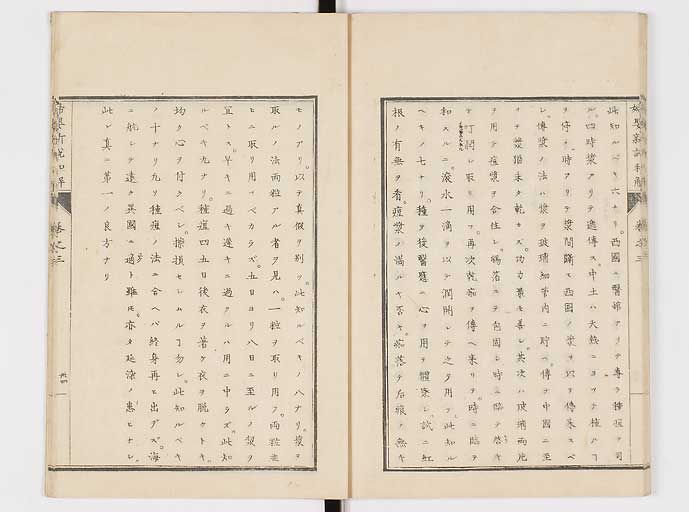 此知ルベキ六ナリ。西國ニ醫館アリテ專ラ種痘ヲ司
ル。四時漿アリテ遞傳ス。中土ハ大熱ニヨツテ種ルヿ
ヲ停ム。時アリテ漿間斷ス西國ノ漿ヲ以テ傳來スベ
シ。傳漿ノ法ハ漿ヲ玻璃細管内ニ貯ヘ。傳テ中國ニ至
ルヲテ漿猶未タ乾カズ。功力最モ善シ。其次ハ玻璃兩片
ヲ用テ痘漿ヲ合住シ。錫箔ニテ包固シ時ニ臨テ啓キ
テ 潤シ取リ用フ。再次乾痂ヲ傳ヘ來リテ。時ニ臨テ
和スルニ。滾水一滴ヲ以テ潤開シテ之ヲ用フ。此知ル
ヘキノ七ナリ。種テ後醫應ニ心ヲ用テ體察シ。試ニ紅
根ノ有無ヲ看。痘漿ノ滿ルヤ否ヤ。痂落テ后痕ノ無キ
モノアリ。以テ真假ヲ別ツ。此知ルベキノ八ナリ。漿ヲ
取ルノ法兩粒アル者ヲ見ハ。一粒ヲ取リ用フ。兩粒共
ヒニ取リ用フベカラズ。五日ヨリ八日ニ至ルノ漿ヲ
宜トス。早キニ過キ遲キニ過クルハ用ニ中ラズ。此知
ルベキ九ナリ。種痘四五日後衣ヲ著ケ衣ヲ脱クトキ。
均ク心ヲ付クベシ。擦損セシムルヿ勿レ。此知ルベキ
ノ十ナリ九ソ種痘ノ法ニ合ヘバ終身再ヒ出デズ。海
ニ航シテ遠ク異國ニ適ト雖モ。亦タ延染ノ患ヒナシ。
此レ真ニ第一ノ良方ナリ
卷之三